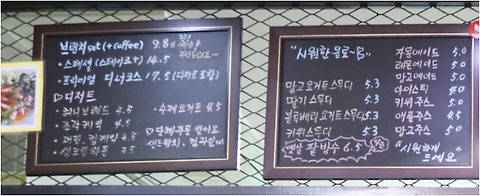 브런치set(+coffee) 9.8
·스페셜(스테이크+) 14.5
·프리미엄 디너코스 17.5 (디저트 포함)
♡디저트
·허니브레드 5.5
·수제요거트 4.5
·조각케익 4.5
♡단체주문 받아요
샌드위치,
"시원한 음료~"
망고요거트스무디 5.3
딸기 스무디 5.3
블루베리요거트스무디 5.3
키위스무디 5.3
옛날 팥빙수 6.5
자몽에이드 5.0
레몬에이드 5.0
망고에이드 5.0
아이스티 4.0
키위주스 5.0
애플주스 4.5
망고주스 5.0
"시원하게 드세요"